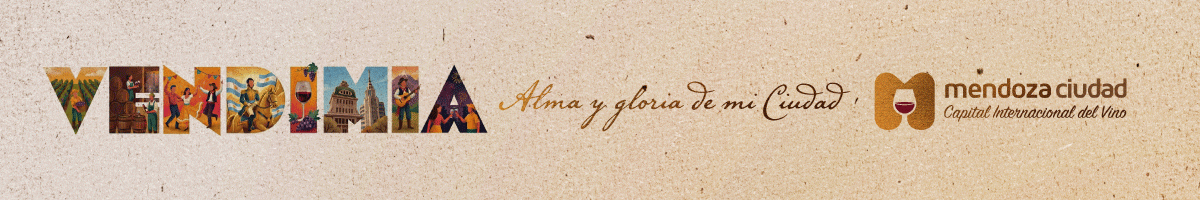 VENDIMIA
Alma y gloria de mi Ciudad
mendoza ciudad
Capital Internacional del Vino